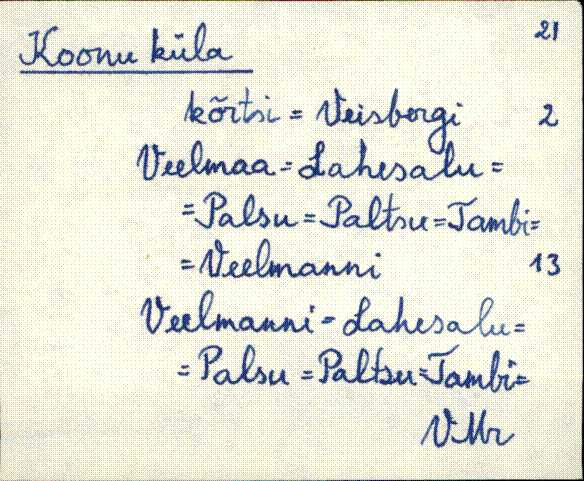 21
Koonu küla
kõrtsi = Veisbergi 2
Veelmaa = Lahesalu =
= Palsu = Paltsu = Tambi =
= Veelmanni 13
Veelmanni = Lahesalu =
= Palsu = Paltsu = Tambi =
VMr